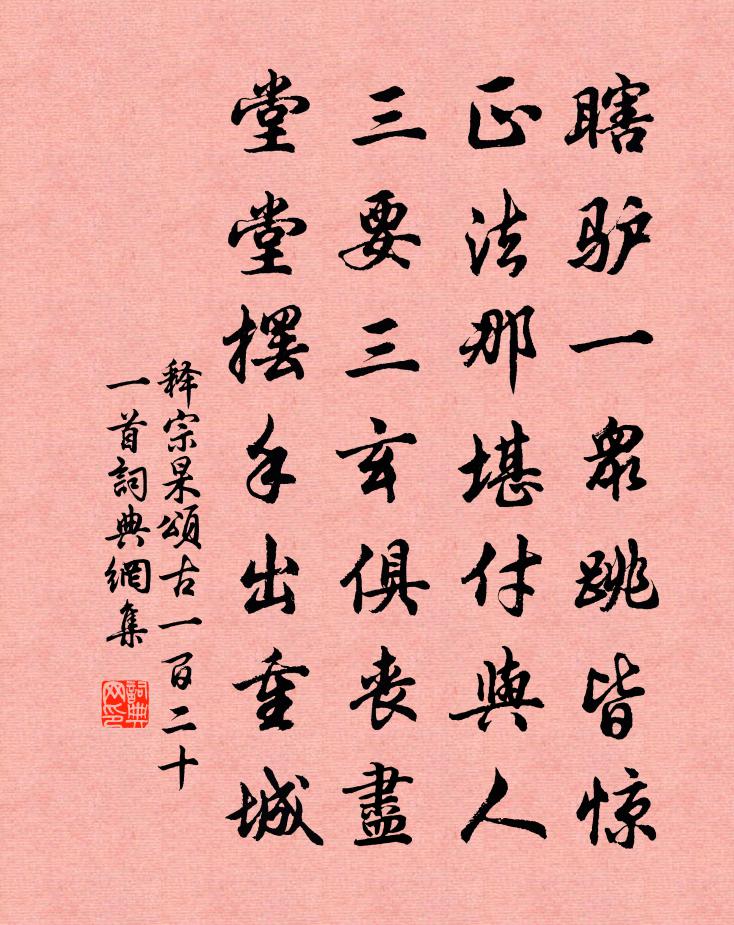 瞎驴一眾跳皆惊
正法那堪付與人
三要三玄俱丧盡
堂堂摆手出重城
释宗杲頌古一百二十
一首詞典網集
詞典
网印